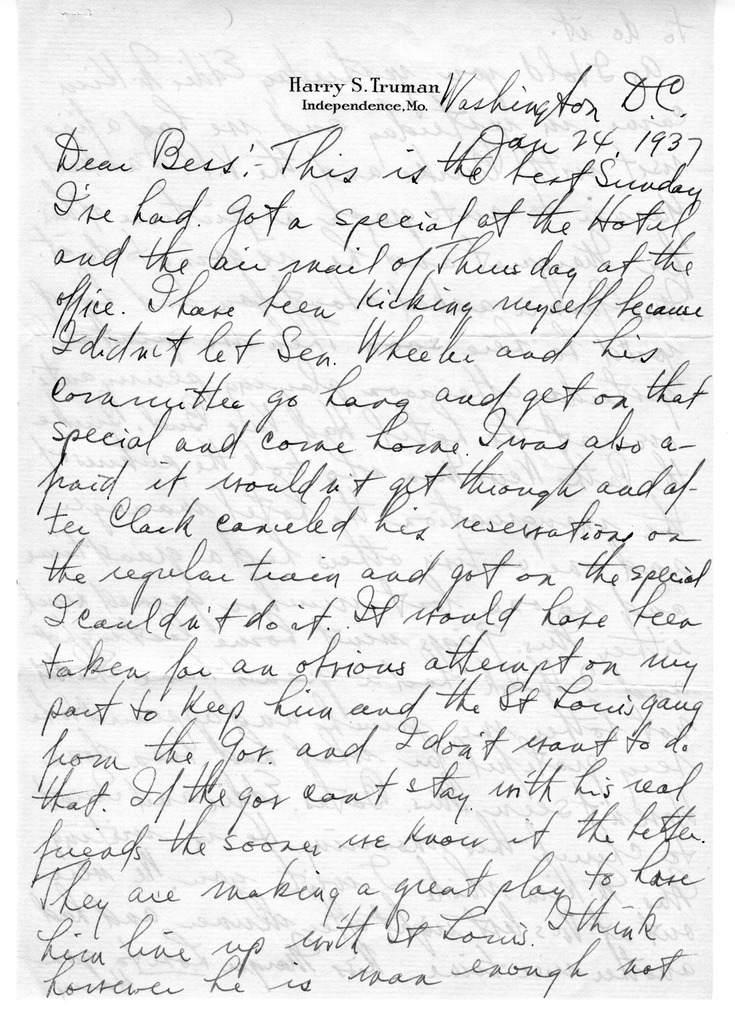 Harry S. Truman
Independence, Mo.
Washington DC.
Jan 24, 1937
Dear Bess:- This is the best Sunday
I've had. Got a special at the Hotel
and the air mail of Thursday at the
office. I have been kicking myself because
I didn't let Sen. Wheeler and his
committee go hang and get on that
special and come home. I was also a-
fraid it wouldn't get through and af-
ter Clark canceled his reservations on
the regular train and got on the special
I couldn't do it. It would have been
taken for an obvious attempt on my
part to keep him and the St Louis gang
from the Gov. and I don't want to do
that. If the gov cant stay with his real
friends the sooner we know it the better.
They are making a great play to have
him line up with St Louis. I think
however he is man enough not